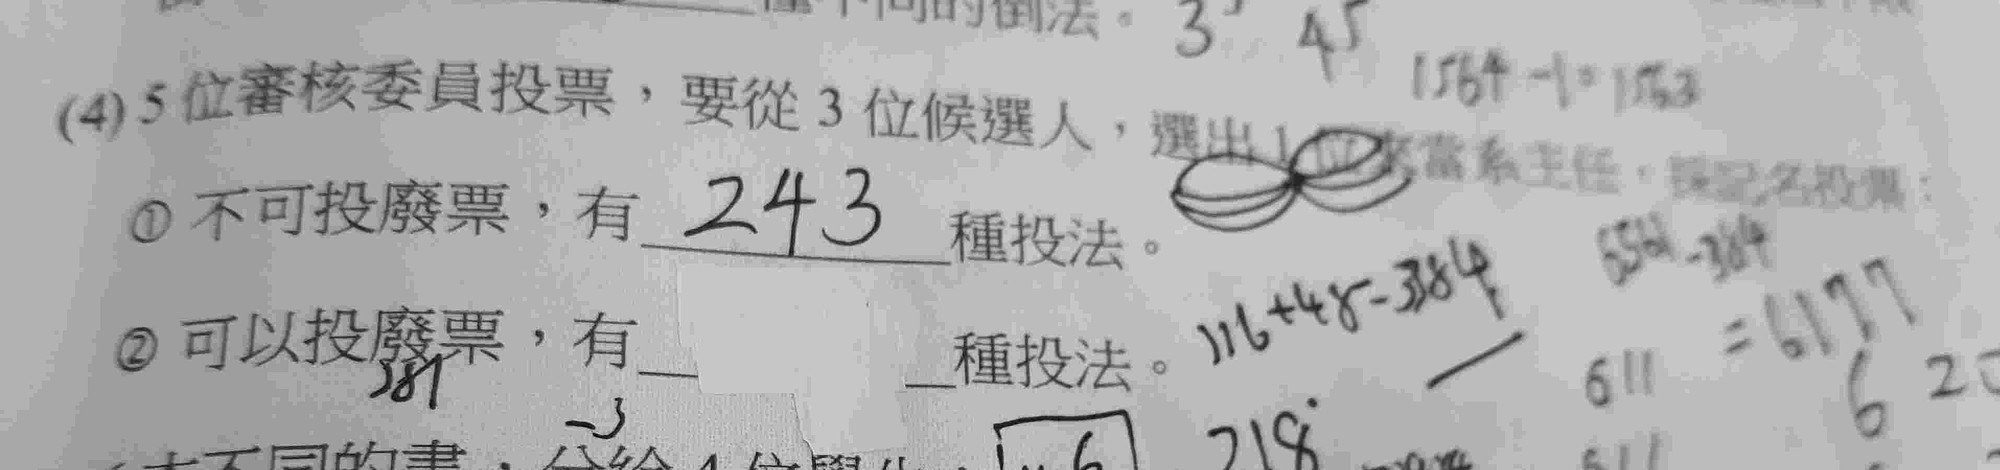 種不同的倒法。 3 45
1564-1=1563
(4) 5 位審核委員投票，要從 3 位候選人，選出 1 位來當系主任，採記名投票：
① 不可投廢票，有 243 種投法。
6561-384
=6177
② 可以投廢票，有 種投法。 116+48-384
611
6 20
-3
本不同的書，分給 4 位學生， 6 218
611